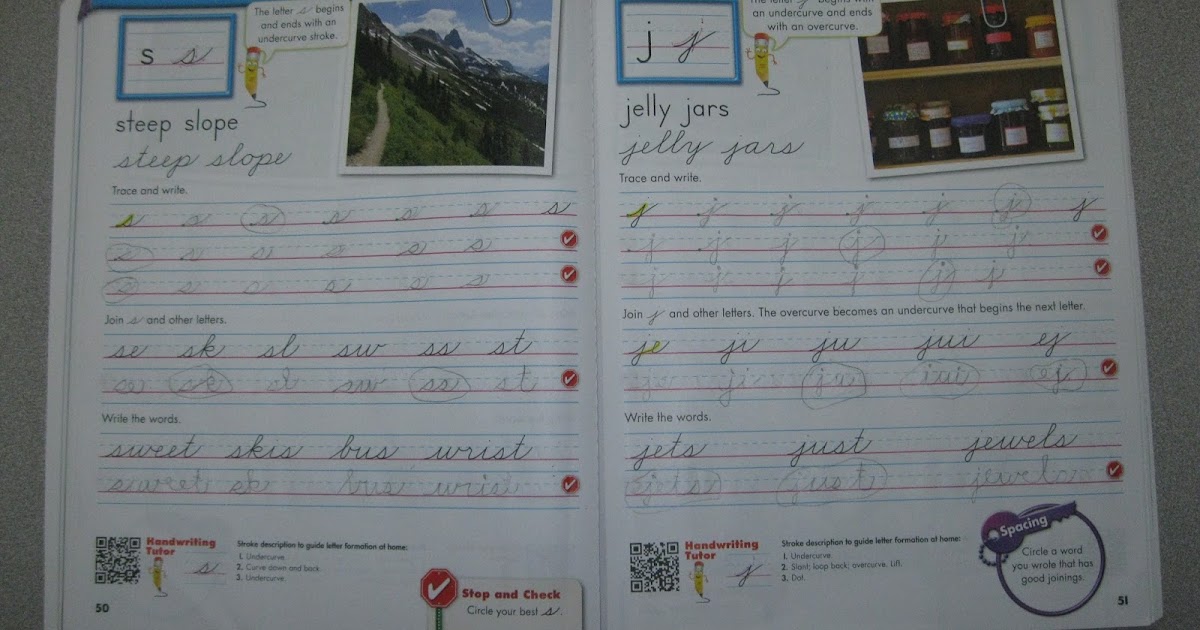 The letter s begins
and ends with an
undercurve stroke.
s s
steep slope
steep slope
Trace and write.
s s s s s s s
s s s s s s
s s s s s s
Join s and other letters.
se sk sl sw ss st
se sk sl sw ss st
Write the words.
sweet skis bus wrist
sweet sk bus wrist
Handwriting
Tutor
s
Stroke description to guide letter formation at home:
1. Undercurve.
2. Curve down and back.
3. Undercurve.
Stop and Check
Circle your best s.
50
The letter j begins with
an undercurve and ends
with an overcurve.
j j
jelly jars
jelly jars
Trace and write.
j j j j j j j
j j j j j j
j j j j j j
Join j and other letters. The overcurve becomes an undercurve that begins the next letter.
je ji ju jui ej
je ji ju jui ej
Write the words.
jets just jewels
jets just jewels
Handwriting
Tutor
j
Stroke description to guide letter formation at home:
1. Undercurve.
2. Slant; loop back; overcurve. Lift.
3. Dot.
Spacing
Circle a word
you wrote that has
good joinings.
51